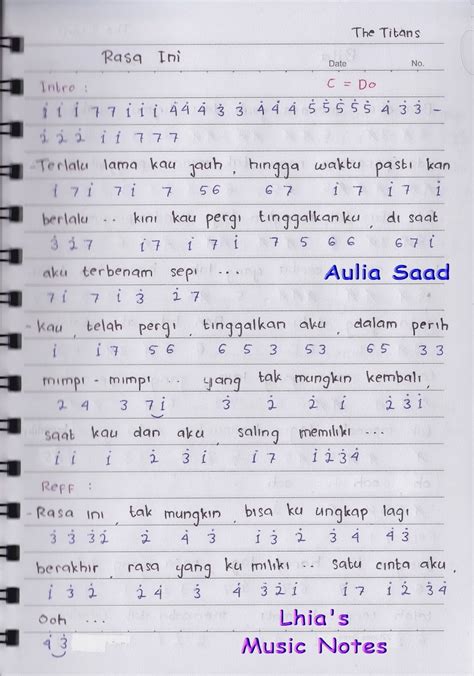 The Titans
Rasa Ini
Date No.
Intro : C = Do
i̇ i̇ i̇ 7 7 i̇ i̇ i̇ 4̇ 4̇ 4̇ 3̇ 3̇ 4̇ 4̇ 4̇ 5̇ 5̇ 5̇ 5̇ 5̇ 4̇ 3̇ 3̇ -
2̇ 2̇ 2̇ i̇ i̇ 7 7 7
- Terlalu lama kau jauh, hingga waktu pasti kan
i̇ 7 i̇ 7 i̇ 7 56 6 7 i̇ 7 i̇ 7 i̇
berlalu .. kini kau pergi tinggalkanku, di saat
3̇ 2̇ 7 i̇ 7 i̇ 7 i̇ 7 5 6 6 6 7 i̇
aku terbenam sepi ...
Aulia Saad
7 i̇ 7 i̇ 3̇ 2̇ 7
- Kau, telah pergi, tinggalkan aku, dalam perih
i̇ i̇ 7 5 6 6 5 3 5 3 6 5 3 3
mimpi - mimpi .. yang tak mungkin kembali,
2 4 3 7 i̇ 3̇ 2̇ 2̇ i̇ 2̇ 3̇ i̇
saat kau dan aku, saling memiliki ...
i̇ i̇ i̇ 2̇ 3̇ i̇ i̇ 7 i̇ 2̇ 3̇ 4̇
Reff :
- Rasa ini, tak mungkin, bisa ku ungkap lagi
3̇ 3̇ 3̇ 2̇ 2̇ 4̇ 3̇ i̇ 3̇ 2̇ 3̇ 4̇ 3̇
berakhir, rasa yang ku miliki .. satu cinta aku,
i̇ 3̇ 2̇ 2̇ 4̇ 3̇ i̇ 2̇ i̇ 2̇ i̇ 7 i̇ 2̇ 3̇ 4̇
Ooh ...
4̇ 3̇
Lhia's
Music Notes